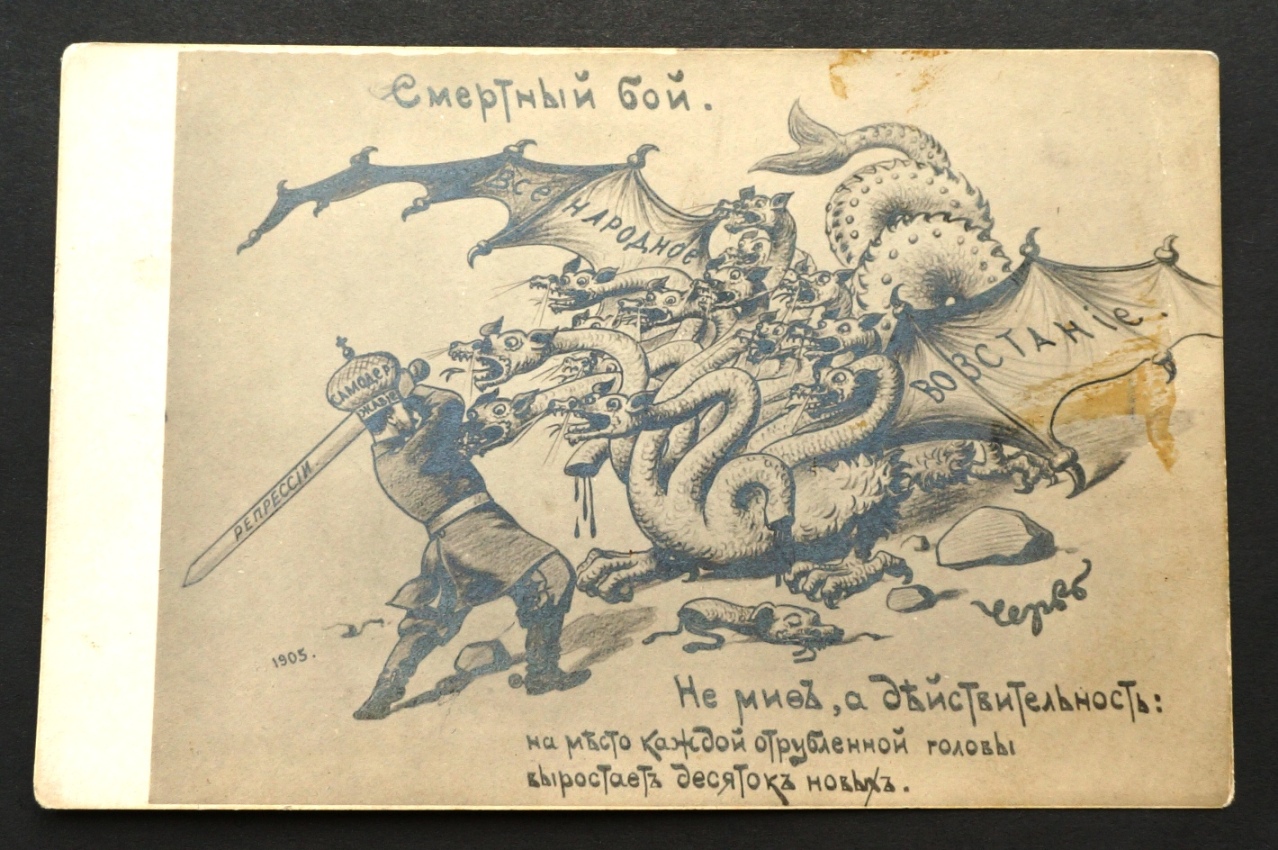 Смертный бой.
Все
народное
Возстаніе.
Самодер
жавіе
Репрессіи.
Червь
1905.
Не миѳъ, а дѣйствительность:
на мѣсто каждой отрубленной головы
выростаетъ десятокъ новыхъ.